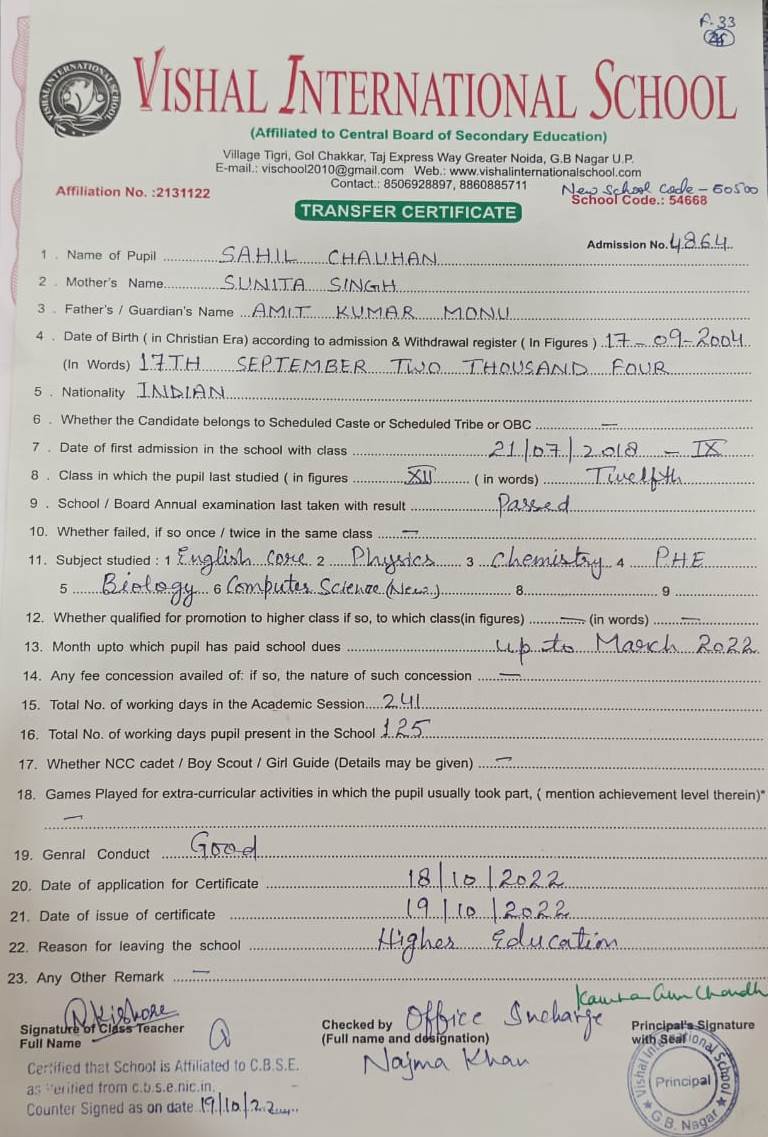 F. 33
VISHAL INTERNATIONAL SCHOOL
VISHAL INTERNATIONAL SCHOOL
(Affiliated to Central Board of Secondary Education)
Village Tigri, Gol Chakkar, Taj Express Way Greater Noida, G.B Nagar U.P.
E-mail.: vischool2010@gmail.com Web.: www.vishalinternationalschool.com
Contact.: 8506928897, 8860885711
New School Code - 60500
Affiliation No. :2131122 School Code.: 54668
TRANSFER CERTIFICATE
Admission No. 4864
1 . Name of Pupil SAHIL CHAUHAN
2 . Mother's Name SUNITA SINGH
3 . Father's / Guardian's Name AMIT KUMAR MONU
4 . Date of Birth ( in Christian Era) according to admission & Withdrawal register ( In Figures ) 17-09-2004
(In Words) 17TH SEPTEMBER TWO THOUSAND FOUR
5 . Nationality INDIAN
6 . Whether the Candidate belongs to Scheduled Caste or Scheduled Tribe or OBC —
7 . Date of first admission in the school with class 21/07/2018 - IX
8 . Class in which the pupil last studied ( in figures XII ( in words) Twelfth
9 . School / Board Annual examination last taken with result Passed
10. Whether failed, if so once / twice in the same class —
11. Subject studied : 1 English Core 2 Physics 3 Chemistry 4 PHE
5 Biology 6 Computer Science (New) 8 9
12. Whether qualified for promotion to higher class if so, to which class(in figures) — (in words) —
13. Month upto which pupil has paid school dues up to March 2022
14. Any fee concession availed of: if so, the nature of such concession —
15. Total No. of working days in the Academic Session 241
16. Total No. of working days pupil present in the School 125
17. Whether NCC cadet / Boy Scout / Girl Guide (Details may be given) —
18. Games Played for extra-curricular activities in which the pupil usually took part, ( mention achievement level therein)*
—
19. Genral Conduct Good
20. Date of application for Certificate 18/10/2022
21. Date of issue of certificate 19/10/2022
22. Reason for leaving the school Higher Education
23. Any Other Remark —
Kishore
Signature of Class Teacher
Full Name
Checked by Office Incharge
(Full name and designation)
Najma Khan
Principal's Signature
with Seal
Certified that School is Affiliated to C.B.S.E.
as Verified from c.b.s.e.nic.in.
Counter Signed as on date 19/10/22
Vishal International School
Principal
G.B. Nagar